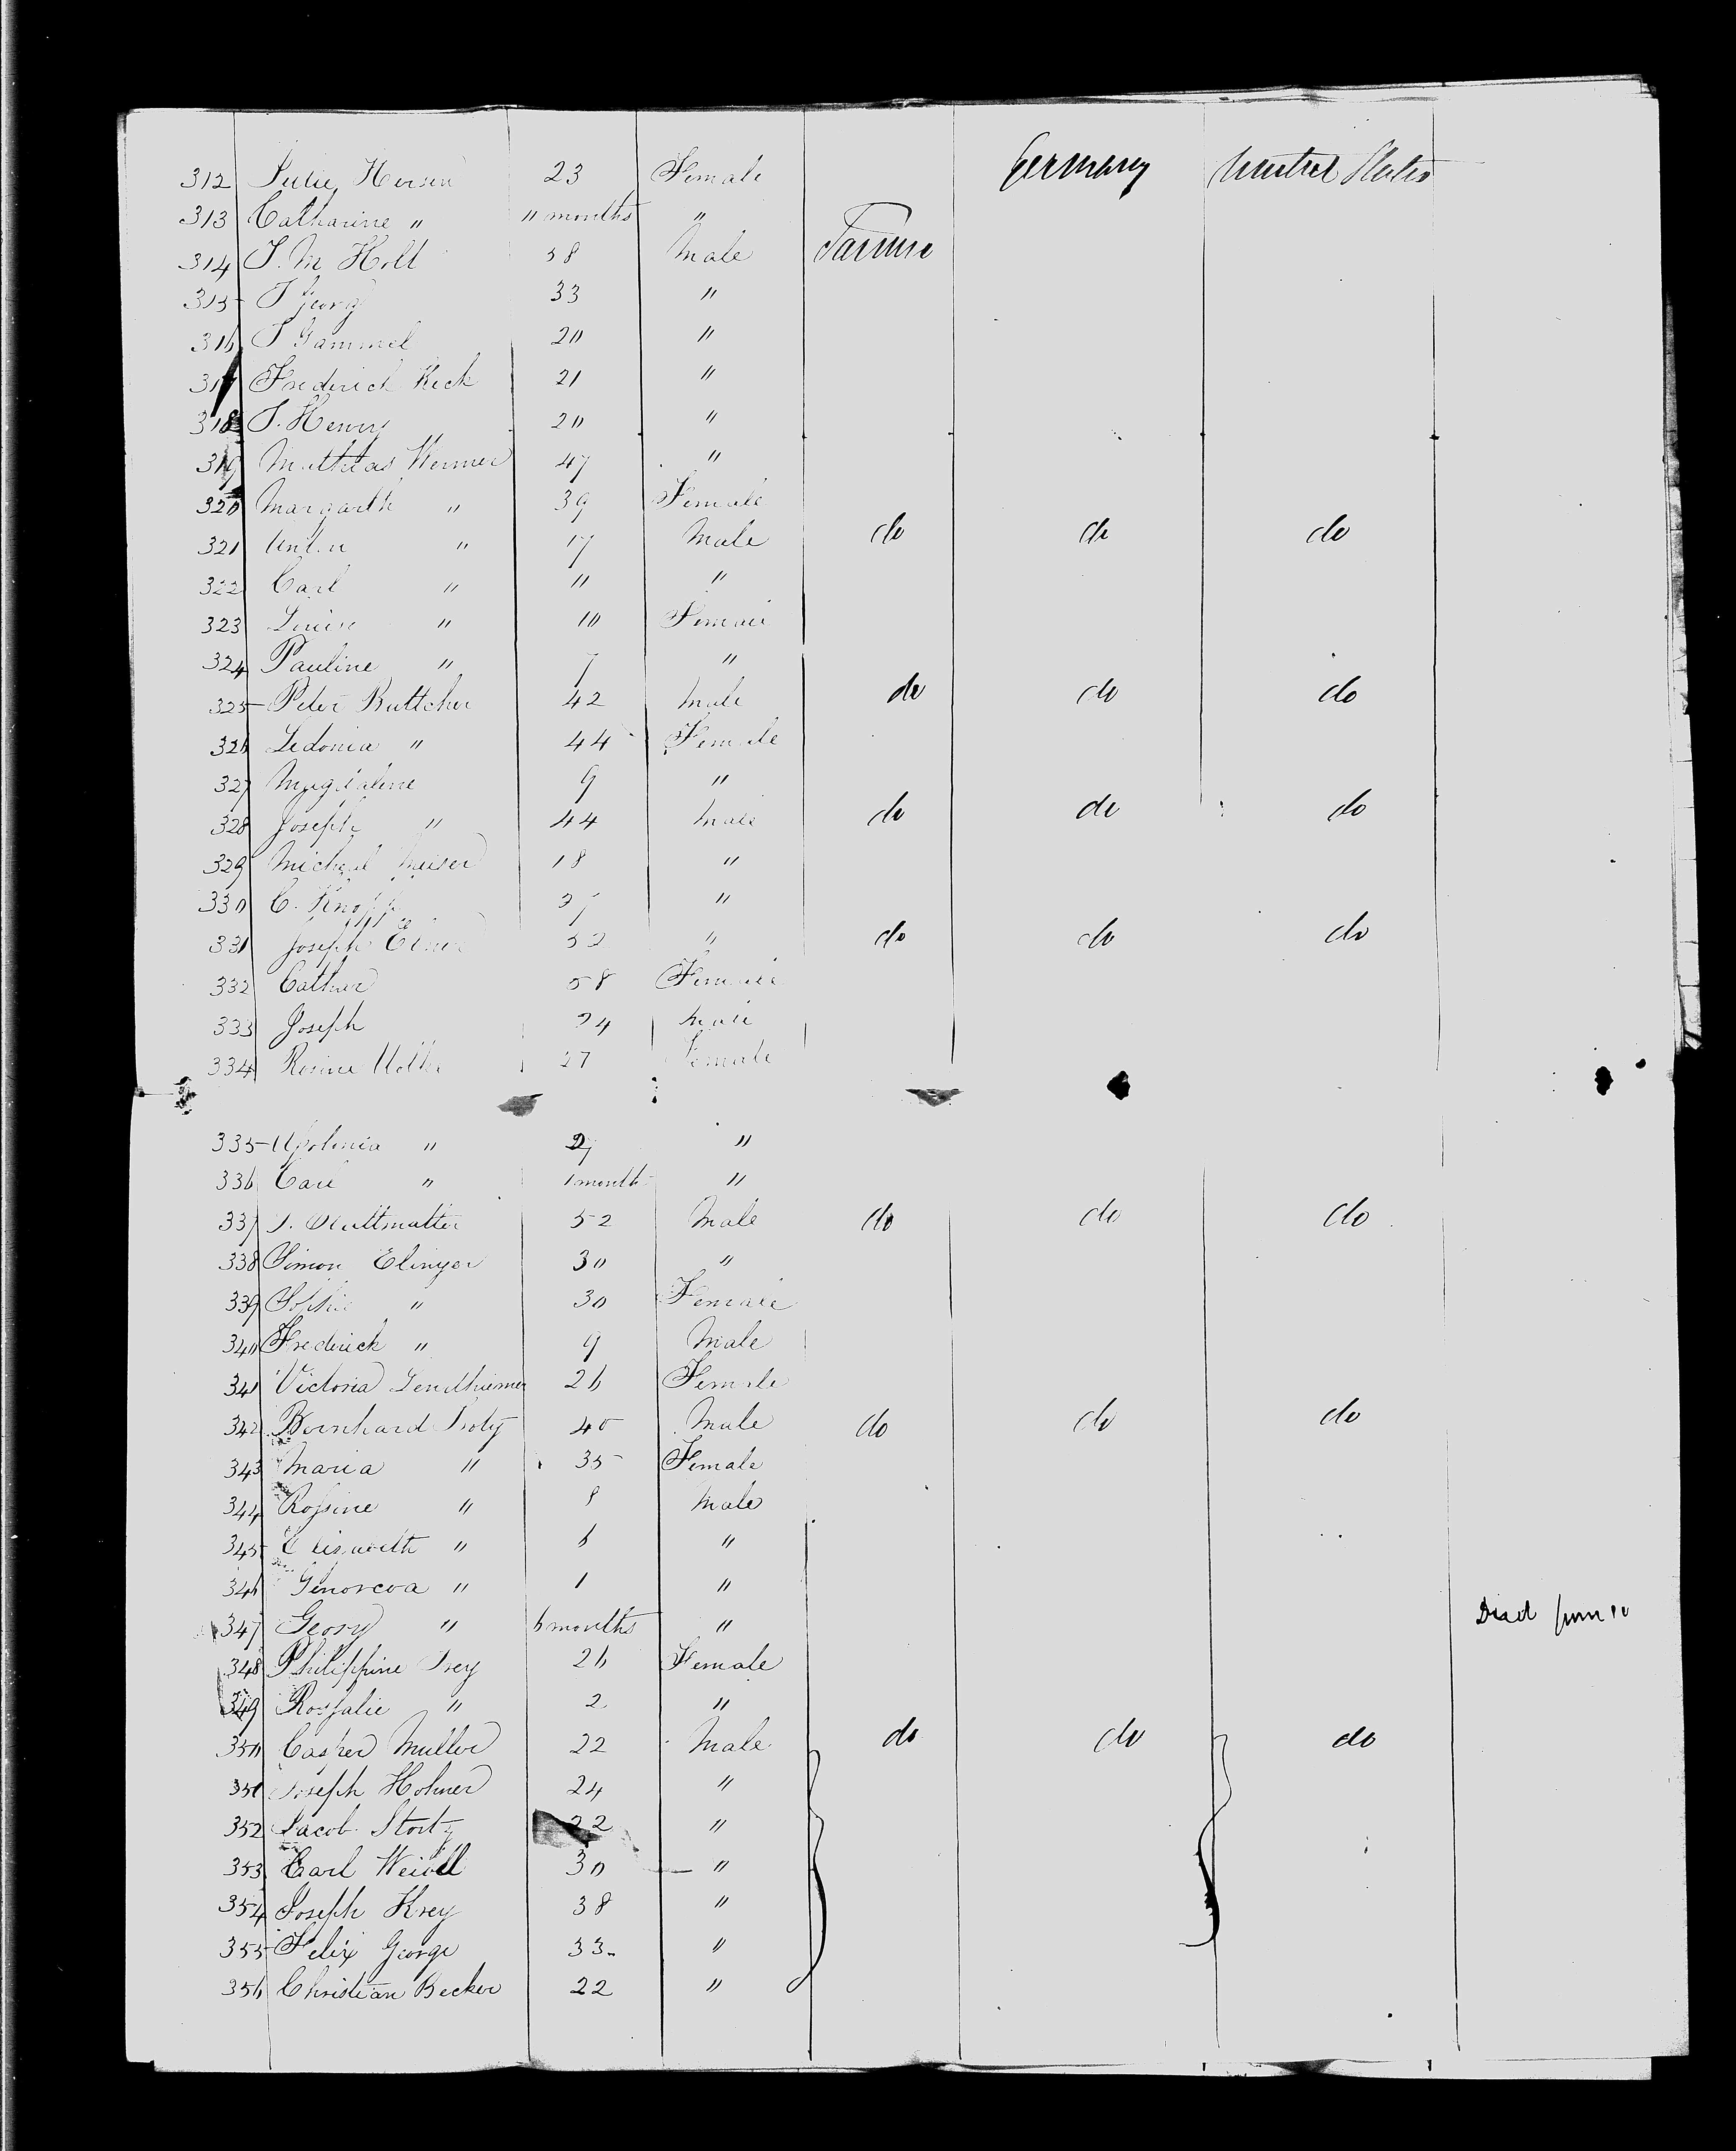 Germany United States
312 Julie Hersen 23 Female
313 Catharine " 11 months "
314 J. M Holt 58 Male Farmer
315 J Georg 33 "
316 J Gammel 20 "
317 Frederick Keck 21 "
318 J. Henry 20 "
319 Mathias Wermer 47 "
320 Margarth " 39 Female
321 Anton " 17 Male do do do
322 Carl " 11 "
323 Louise " 10 Female
324 Pauline " 7 "
325 Peter Buttcher 42 Male do do do
326 Ledonia " 44 Female
327 Magdaline 9 "
328 Joseph " 44 Male do do do
329 Michael 18 "
330 C. Knopp "
331 Joseph 52 " do do do
332 Cather 58 Female
333 Joseph 24 Male
334 Rosine 27 Female
335 Apolonia " 27 "
336 Carl " 1 month "
337 J. 52 Male do do do
338 Simon Elinger 30 "
339 Sophie " 30 Female
340 Frederick " 9 Male
341 Victoria Lendhiemer 26 Female
342 Bernhard 40 Male do do do
343 Maria " 35 Female
344 Rossine " 8 Male
345 Elisabeth " 6 "
346 Genoveva " 1 "
347 Georg " 6 months " Died June 10
348 Philippine Frey 26 Female
349 Rossalie " 2 "
350 Casper Muller 22 Male do do do
351 Joseph Hohner 24 "
352 Jacob Stortz 22 "
353 Carl Weibell 30 "
354 Joseph Krey 38 "
355 Felix George 33 "
356 Christian Becker 22 "